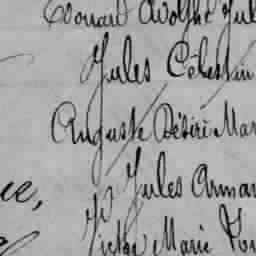 Edouard Adolphe Jul
Jules Célestin
Auguste Désiré Mar
Jules Arman
Victor Marie